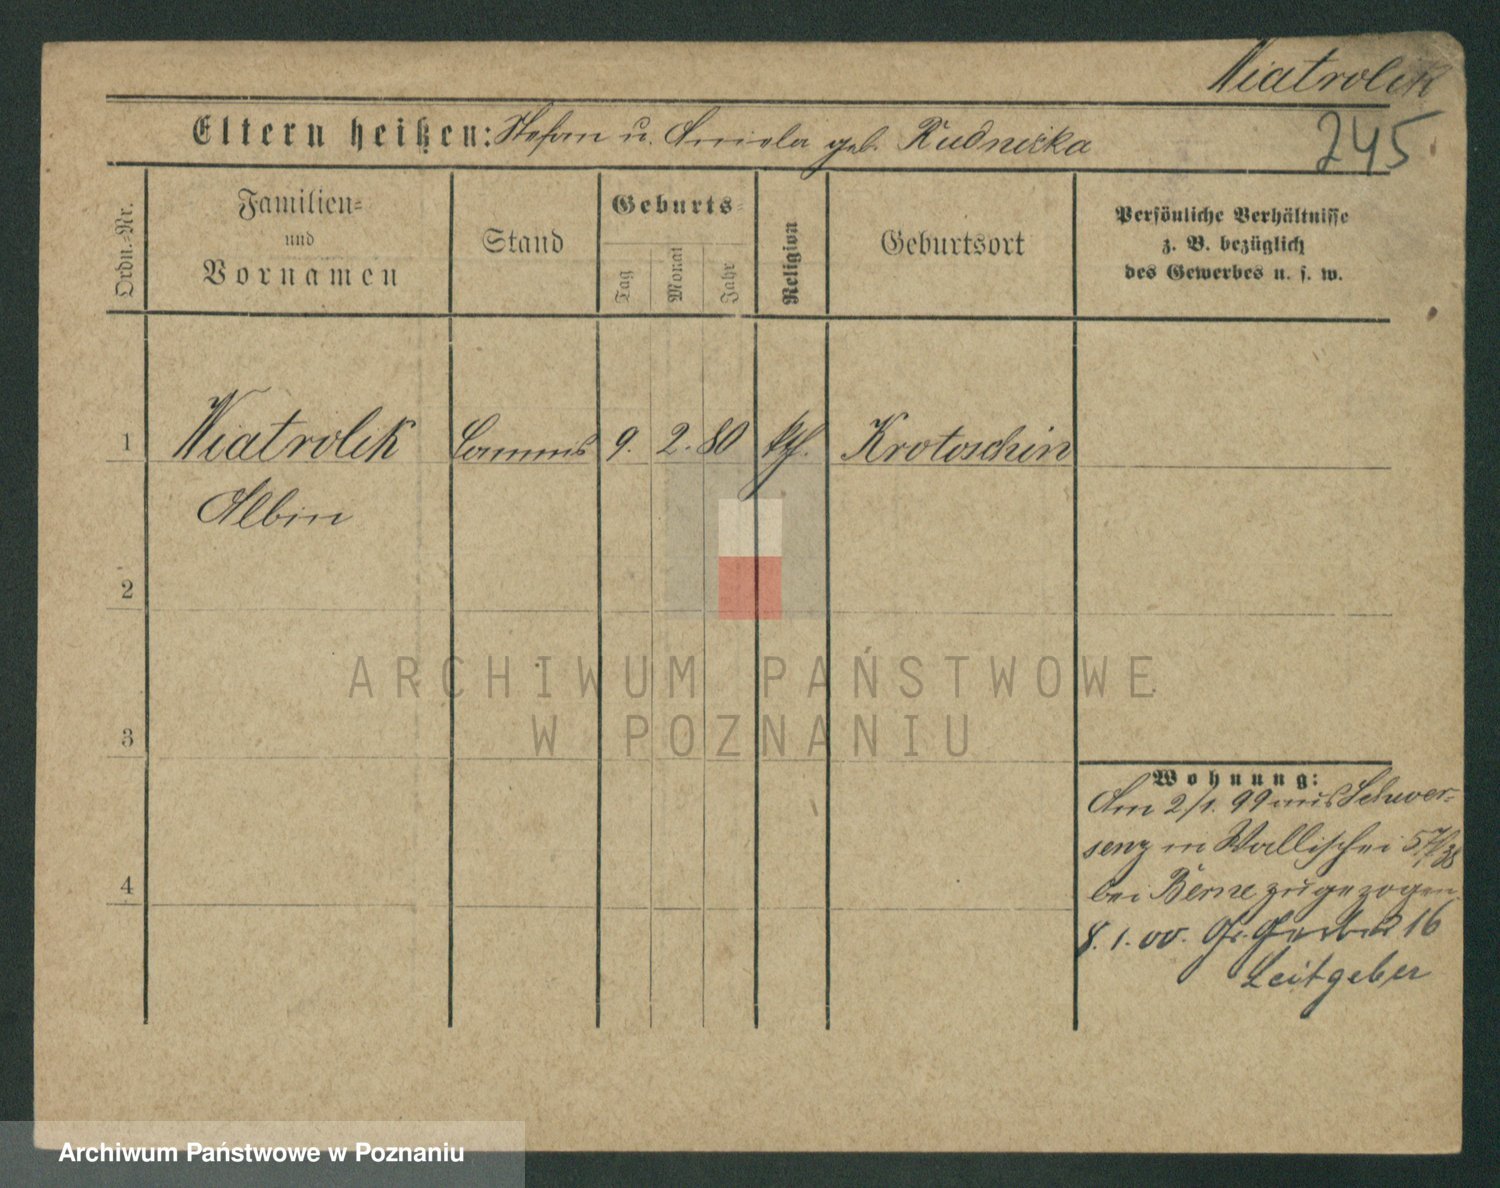 Wiatrolik
245
Eltern heißen: Stefan u. Aniela geb. Rudnicka
Ordn.-Nr.
Familien-
und
Vornamen
Stand
Geburts-
Tag
Monat
Jahr
Religion
Geburtsort
Persönliche Verhältnisse
z. B. bezüglich
des Gewerbes u. s. w.
1
Wiatrolik
Commis
9.
2.
80
kth.
Krotoschin
Albin
2
ARCHIWUM PAŃSTWOWE
W POZNANIU
3
Wohnung:
Am 2/1. 99 aus Schwer-
senz in Wallischei
bei Berne zugezogen
8. 1. 00. Gr. Gerber 16
Leitgeber
4
Archiwum Państwowe w Poznaniu